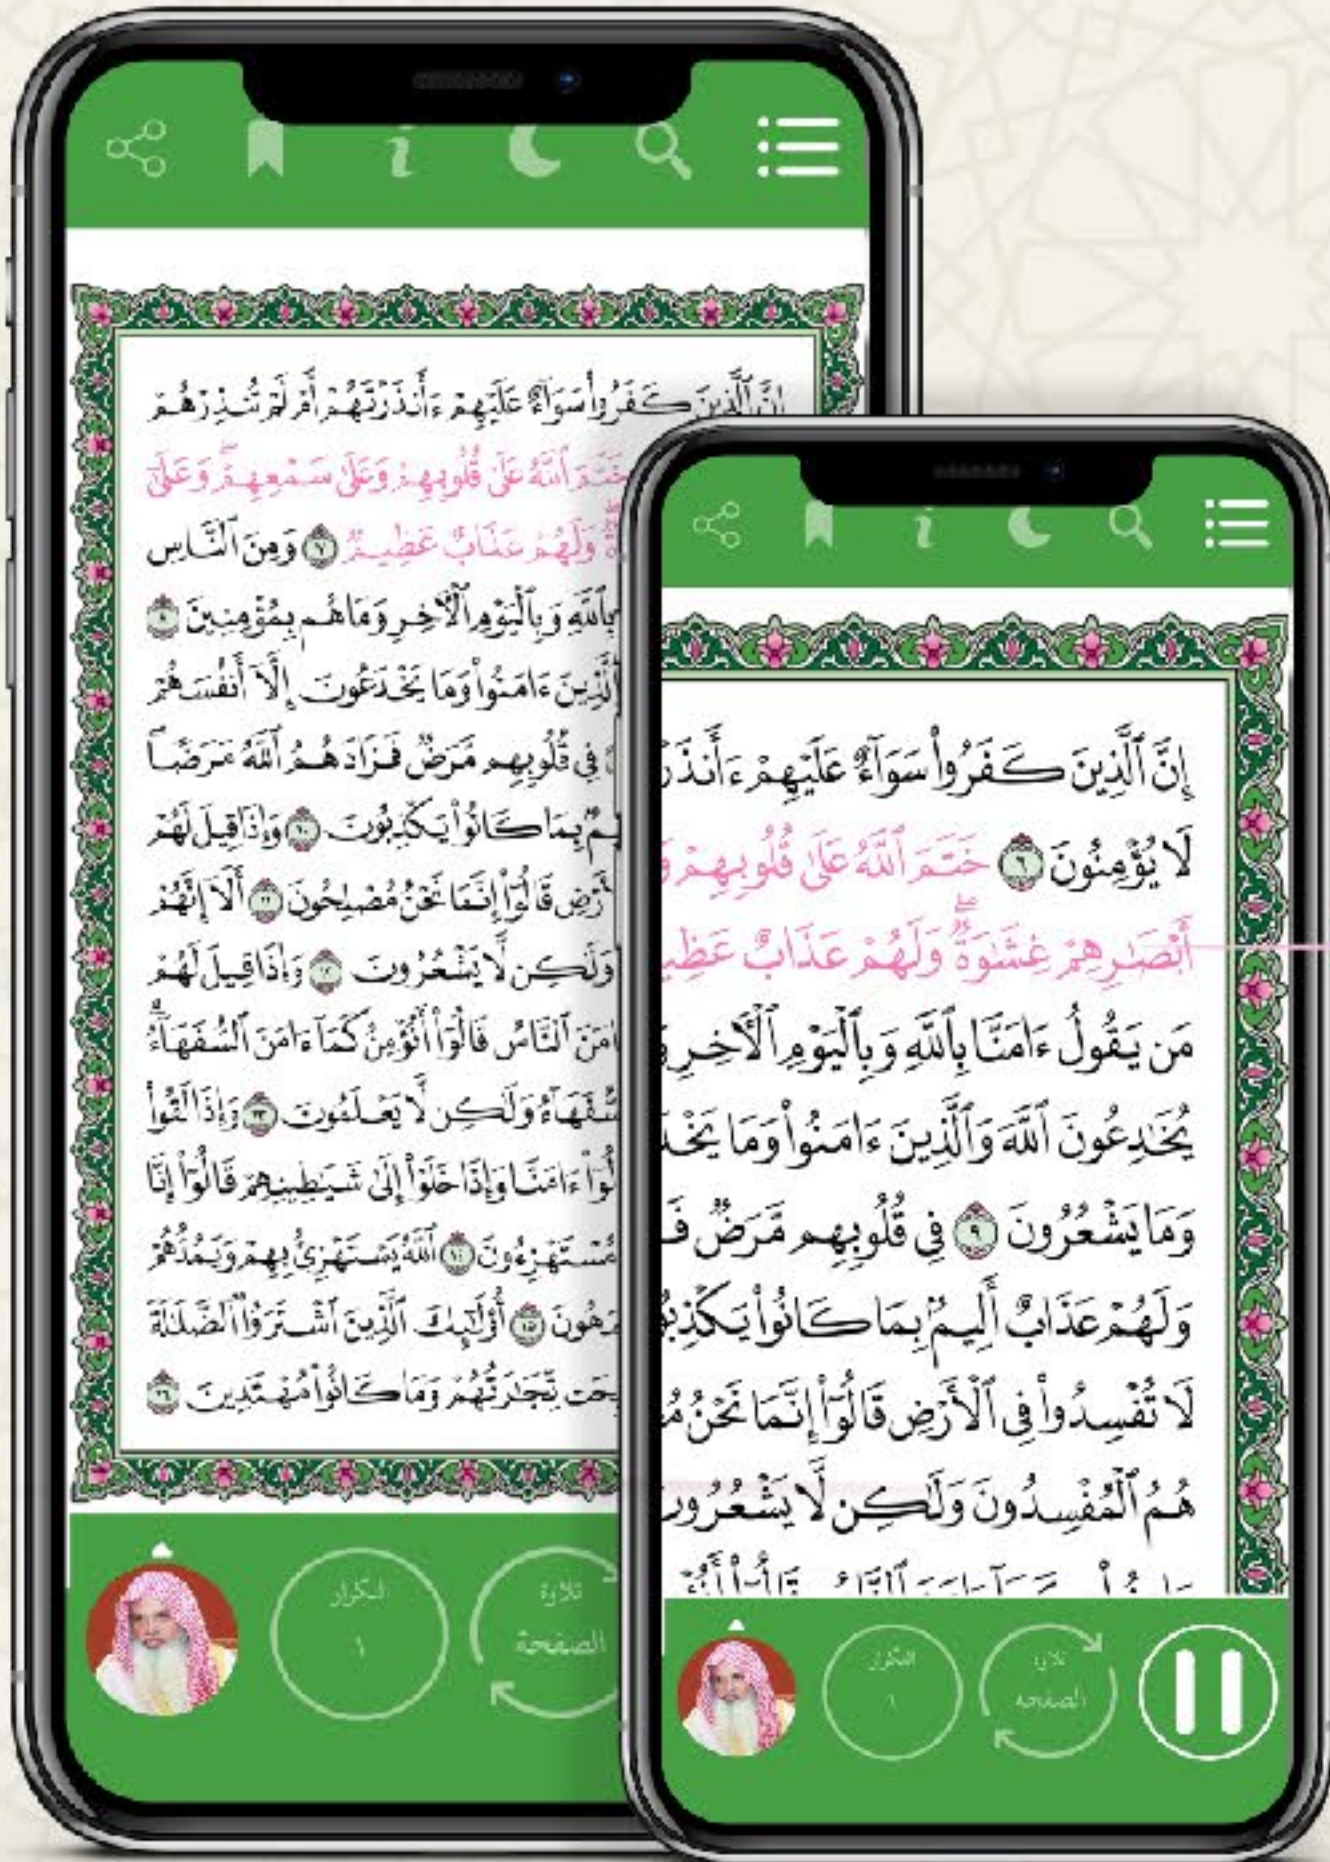 إِنَّ ٱلَّذِينَ كَفَرُواْ سَوَآءٌ عَلَيْهِمْ ءَأَنذَرْتَهُمْ أَمْ لَمْ تُنذِرْهُمْ
خَتَمَ ٱللَّهُ عَلَىٰ قُلُوبِهِمْ وَعَلَىٰ سَمْعِهِمْۖ وَعَلَىٰٓ
وَلَهُمْ عَذَابٌ عَظِيمٌ ٧ وَمِنَ ٱلنَّاسِ
بِٱللَّهِ وَبِٱلْيَوْمِ ٱلْأٓخِرِ وَمَا هُم بِمُؤْمِنِينَ ٨
ٱلَّذِينَ ءَامَنُواْ وَمَا يَخْدَعُونَ إِلَّآ أَنفُسَهُمْ
فِي قُلُوبِهِم مَّرَضٌ فَزَادَهُمُ ٱللَّهُ مَرَضًا
بِمَا كَانُواْ يَكْذِبُونَ ١٠ وَإِذَا قِيلَ لَهُمْ
قَالُوٓاْ إِنَّمَا نَحْنُ مُصْلِحُونَ ١١ أَلَآ إِنَّهُمْ
وَلَٰكِن لَّا يَشْعُرُونَ ١٢ وَإِذَا قِيلَ لَهُمْ
ٱلنَّاسُ قَالُوٓاْ أَنُؤْمِنُ كَمَآ ءَامَنَ ٱلسُّفَهَآءُۗ
وَلَٰكِن لَّا يَعْلَمُونَ ١٣ وَإِذَا لَقُواْ
ءَامَنَّا وَإِذَا خَلَوْاْ إِلَىٰ شَيَٰطِينِهِمْ قَالُوٓاْ إِنَّا
مُسْتَهْزِءُونَ ١٤ ٱللَّهُ يَسْتَهْزِئُ بِهِمْ وَيَمُدُّهُمْ
١٥ أُوْلَٰٓئِكَ ٱلَّذِينَ ٱشْتَرَوُاْ ٱلضَّلَٰلَةَ
تِّجَٰرَتُهُمْ وَمَا كَانُواْ مُهْتَدِينَ ١٦
تلاوة
الصفحة
التكرار
١
إِنَّ ٱلَّذِينَ كَفَرُواْ سَوَآءٌ عَلَيْهِمْ
لَا يُؤْمِنُونَ ٦ خَتَمَ ٱللَّهُ عَلَىٰ قُلُوبِهِمْ
أَبْصَٰرِهِمْ غِشَٰوَةٌۖ وَلَهُمْ عَذَابٌ
مَن يَقُولُ ءَامَنَّا بِٱللَّهِ وَبِٱلْيَوْمِ ٱلْأٓخِرِ
يُخَٰدِعُونَ ٱللَّهَ وَٱلَّذِينَ ءَامَنُواْ وَمَا
وَمَا يَشْعُرُونَ ٩ فِي قُلُوبِهِم مَّرَضٌ
وَلَهُمْ عَذَابٌ أَلِيمٌۢ بِمَا كَانُواْ
لَا تُفْسِدُواْ فِي ٱلْأَرْضِ قَالُوٓاْ إِنَّمَا نَحْنُ
هُمُ ٱلْمُفْسِدُونَ وَلَٰكِن لَّا
تلاوة
الصفحة
التكرار
١